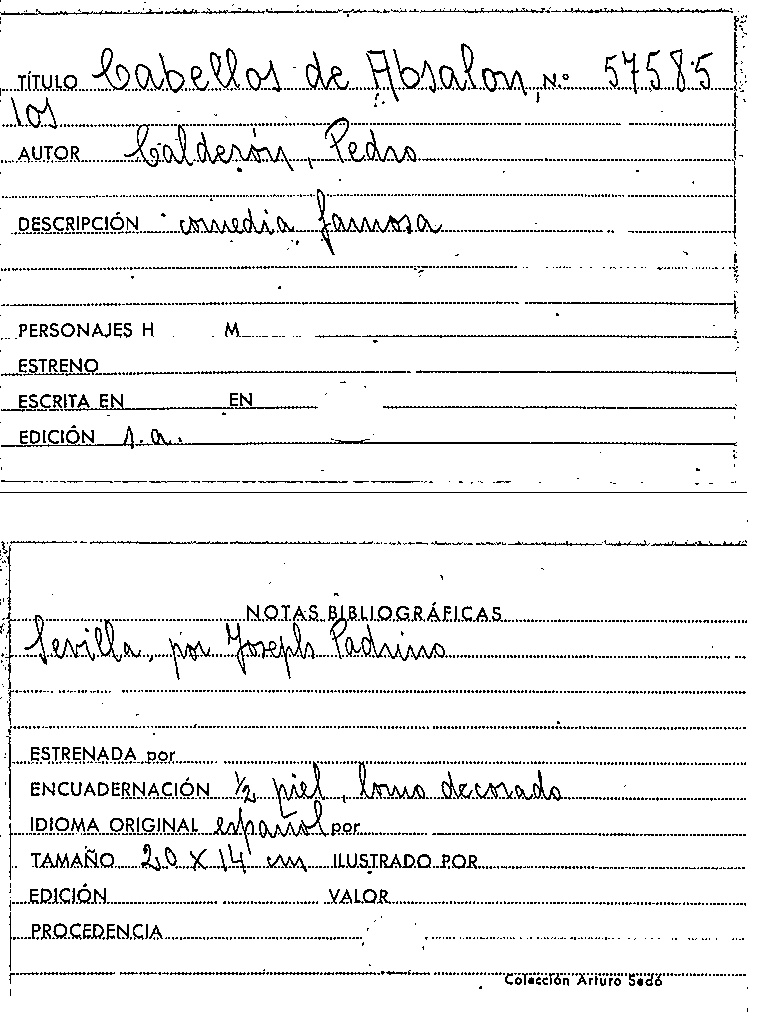 TÍTULO Cabellos de Absalon, N.º 57585
los
AUTOR Calderón, Pedro
DESCRIPCIÓN comedia famosa
PERSONAJES H M
ESTRENO
ESCRITA EN EN
EDICIÓN s.a.
NOTAS BIBLIOGRÁFICAS
Sevilla, por Joseph Padrino
ESTRENADA por
ENCUADERNACIÓN ½ piel, lomo decorado
IDIOMA ORIGINAL español por
TAMAÑO 20 X 14 cm ILUSTRADO POR
EDICIÓN VALOR
PROCEDENCIA
Colección Arturo Sedó